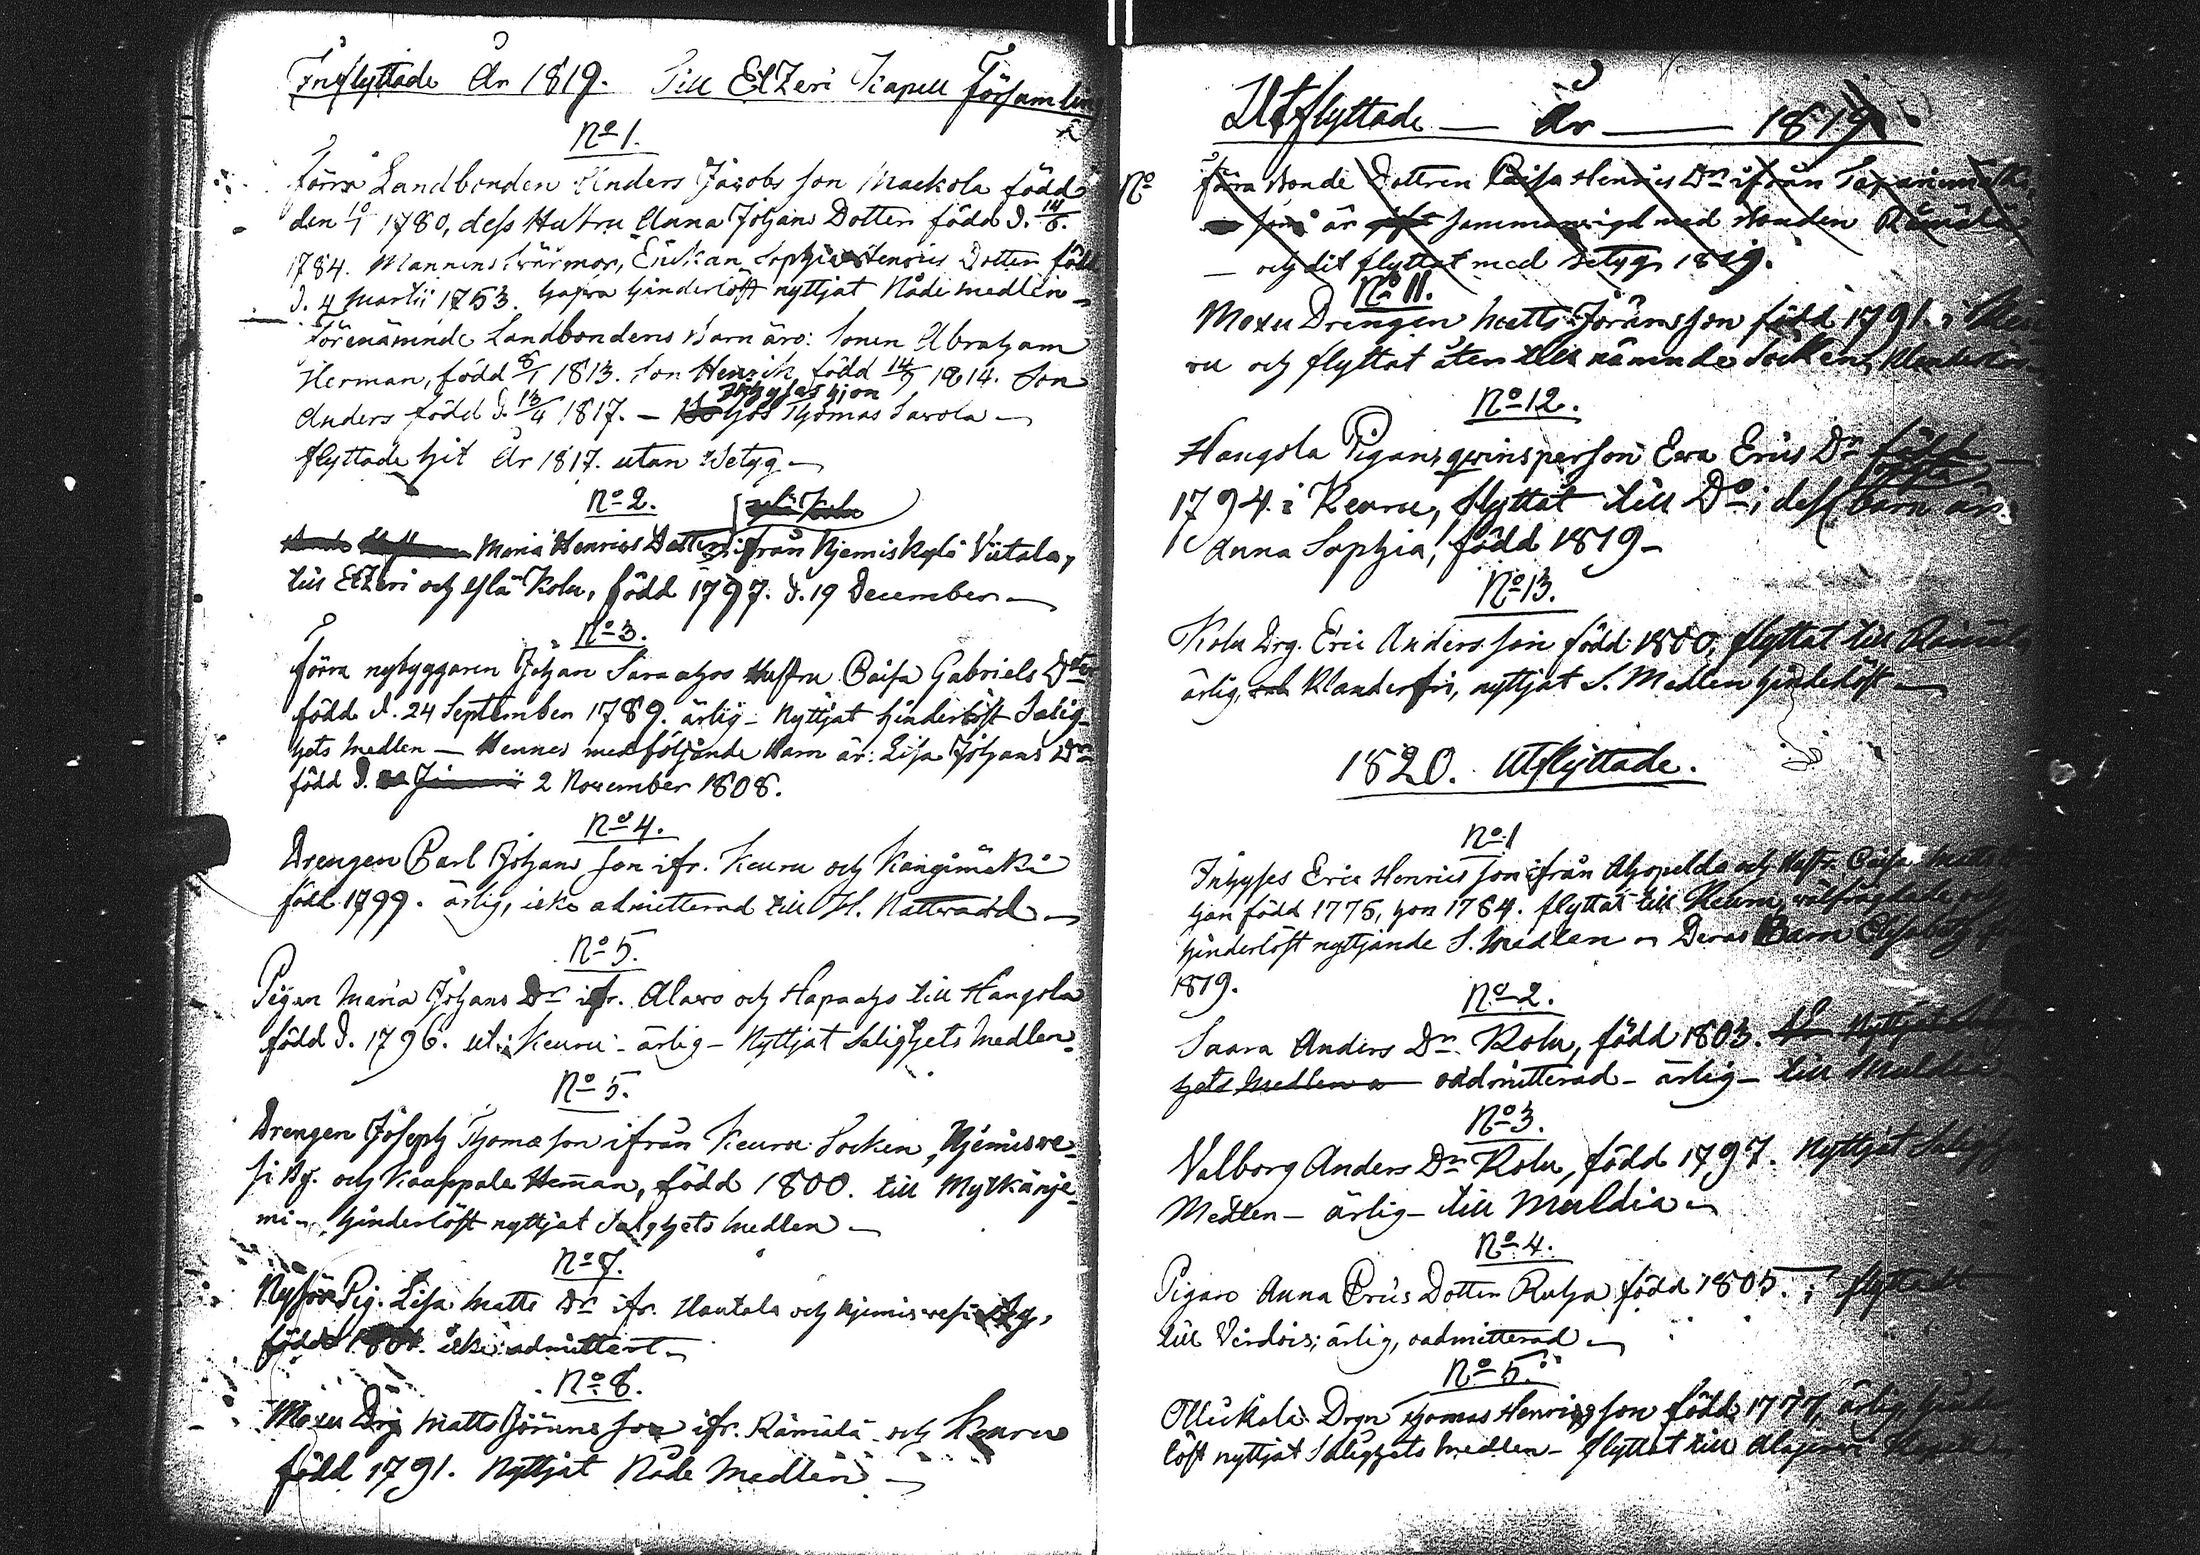 Inflyttade År 1819. Till Etzeri Kapell Församlin
No 1.
Förra Landbonden Anders Jacobs son Mackola född
den 10/1 1780, dess Hustru Anna Johans Dotter född d. 14/8.
1784. Mannens Svärmor, Enkan Sophia Henrics Dotter född
d. 4 Martii 1753. hafva hinderlöst nyttjat Nåde medlen -
Förenämnde Landbondens Barn äro: Sonen Abraham
Herman, född 8/1 1813. Son Henrik född 14/9 1814. Son
Inhyses hjon
Anders född d. 13/4 1817. - hos Thomas Savola -
flyttade hit År 1817. utan Betyg -
No 2.
Maria Henrics Dotter ifrån Njemiskylä Viitala,
till Etzeri och Ylä Kolu, född 1797. d. 19 December -
No 3.
Förra nybyggaren Johan Saraahos Hustru Caisa Gabriels Dotter
född d. 24 September 1789. ärlig - Nyttjat hinderlöst Salig-
hets Medlen - Hennes medföljande Barn är: Lisa Johans Dr
född d. 2 November 1808.
No 4.
Drengen Carl Johans son ifr. Keuru och Kangimäki
född 1799. ärlig, icke admitterad till H. Nattvard -
No 5.
Pigan Maria Johans Dr ifr. Alavo och Hapaaho till Hangola
född d. 1796. uti Keuru - ärlig - Nyttjat Salighets Medlen.
No 5.
Drengen Joseph Thomæ son ifrån Keuru Socken, Njemisve-
si By. och Kaappala Heman, född 1800. till Mylkänje-
mi - hinderlöst nyttjat Salighets Medlen -
No 7.
Pig. Lisa Matts Dr ifr. Hautala och Njemisvesi
född icke admittert -
No 8.
Moxu Drg Matts Jörans son ifr. Rämälä och Keuru
född 1791. Nyttjat Nåde Medlen -
Utflyttade - År - 1819
No Förra Bonde Dottren Caisa Henrics Dr ifrån
är sammanvigd med Bonden Rämälä
- och dit flyttat med Betyg 1819.
No 11.
Moxu Drengen Matts Jörans son född 1791. i Keu
ru och flyttat åter till nämnde Socken,
No 12.
Hangola Pigans qvinsperson Eva Erics Dr född
1794. i Keuru, flyttat till Do; dess barn är
Anna Sophia, född 1819 -
No 13.
Kolu Drg. Eric Anders son född 1800, flyttat till
ärlig, Klanderfri, nyttjat S. Medlen hinderlöst -
1820. Utflyttade.
No 1
Inhyses Eric Henrics son ifrån Ahopelda och Hustr. Caisa Matts
han född 1775, hon 1784. flyttat till Keuru,
hinderlöst nyttjande S. Medlen - Deras Barn
1819.
No 2.
Saara Anders Dr Kolu, född 1803. Nyttjat
hets Medlen oadmitterad - ärlig - till Muldia
No 3.
Valborg Anders Dr Kolu, född 1797. Nyttjat Saligh
Medlen - ärlig - till Muldia -
No 4.
Pigan Anna Erics Dotter född 1805. flyttadt
till Virdois; ärlig, oadmitterad -
No 5.
Ollikala Drgn Thomas Henrics son född 1777, ärlig,
löst nyttjat Salighets Medlen - flyttat till